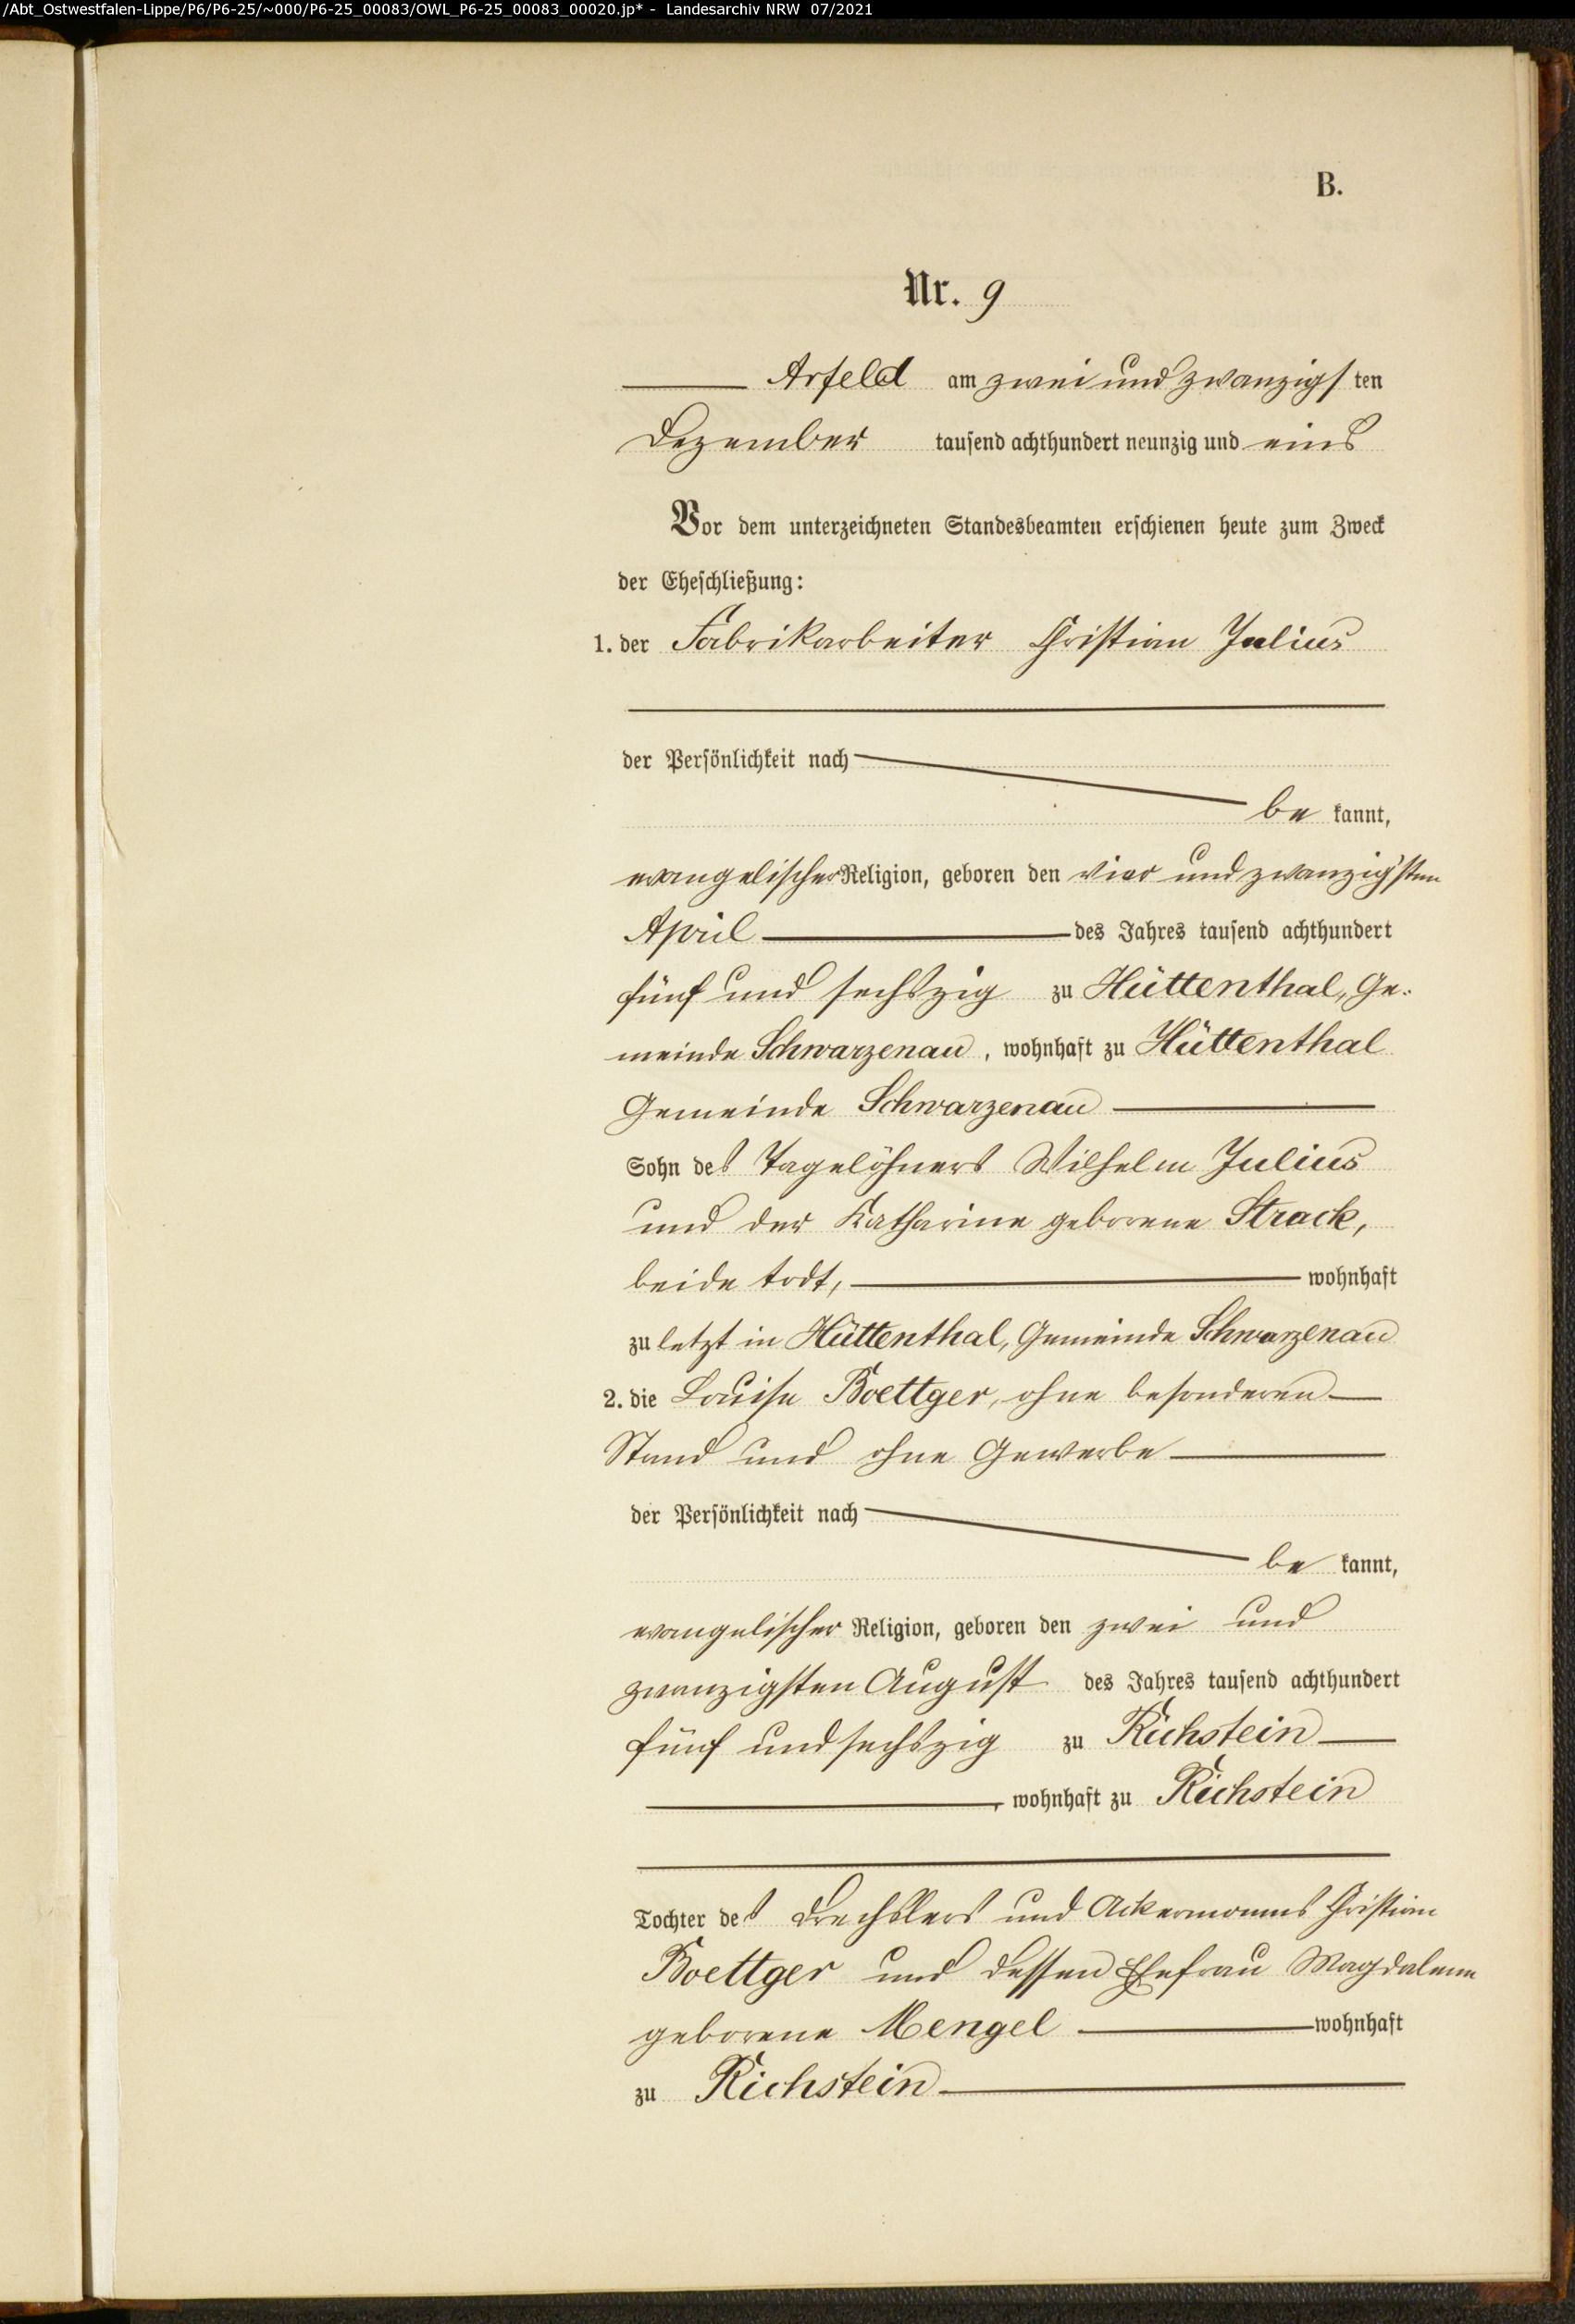 /Abt_Ostwestfalen-Lippe/P6/P6-25/~000/P6-25_00083/OWL_P6-25_00083_00020.jp* - Landesarchiv NRW 07/2021
B.
Nr. 9
Arfeld am zwei und zwanzigsten
Dezember tausend achthundert neunzig und eins
Vor dem unterzeichneten Standesbeamten erschienen heute zum Zweck
der Eheschließung:
1. der Fabrikarbeiter Christian Julius
der Persönlichkeit nach
be kannt,
evangelischer Religion, geboren den vier und zwanzigsten
April des Jahres tausend achthundert
fünf und sechszig zu Hüttenthal, Ge-
meinde Schwarzenau, wohnhaft zu Hüttenthal
Gemeinde Schwarzenau
Sohn des Tagelöhners Wilhelm Julius
und der Katharine geborene Strack,
beide todt, wohnhaft
zuletzt in Hüttenthal, Gemeinde Schwarzenau
2. die Louise Boettger, ohne besonderen
Stand und ohne Gewerbe
der Persönlichkeit nach
be kannt,
evangelischer Religion, geboren den zwei und
zwanzigsten August des Jahres tausend achthundert
fünf und sechszig zu Richstein
, wohnhaft zu Richstein
Tochter des Drechslers und Ackermanns Christian
Boettger und dessen Ehefrau Magdalene
geborene Mengel wohnhaft
zu Richstein